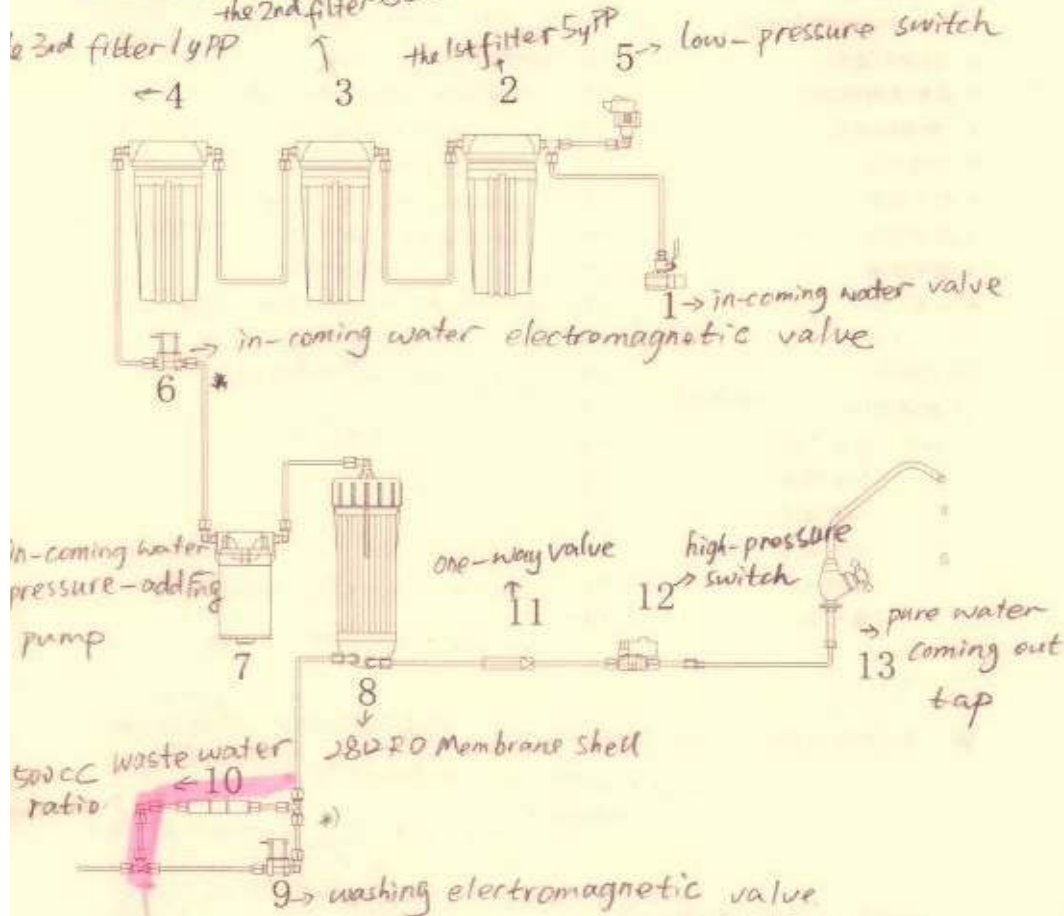 the 2nd filter
3rd filter 1yPP
the 1st filter 5yPP
5 → low-pressure switch
←4
3
2
1 → in-coming water valve
→ in-coming water electromagnetic valve
6
in-coming water
pressure-adding
pump
7
one-way valve
11
high-pressure
12 → switch
→ pure water
13 coming out
tap
8
2812 RO Membrane Shell
500CC waste water
ratio
←10
*)
9 → washing electromagnetic valve